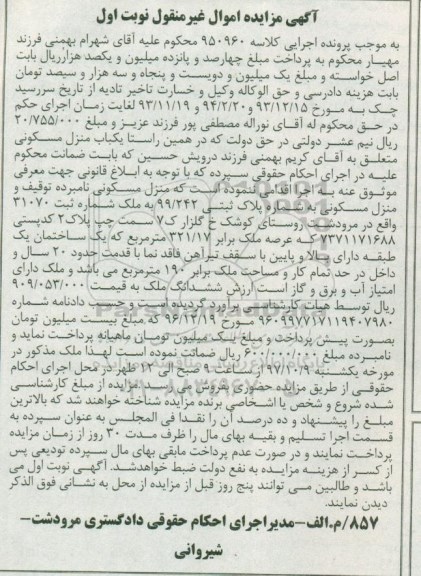 آگهی مزایده اموال غیرمنقول نوبت اول
به موجب پرونده اجرایی کلاسه ۹۵۰۹۶۰ محکوم علیه آقای شهرام بهمنی فرزند
مهیار محکوم به پرداخت مبلغ چهارصد و پانزده میلیون و یکصد هزارریال بابت
اصل خواسته و مبلغ یک میلیون و دویست و پنجاه و سه هزار و سیصد تومان
بابت هزینه دادرسی و حق الوکاله وکیل و خسارت تاخیر تادیه از تاریخ سررسید
چک به مورخ ۹۳/۱۲/۱۵ و ۹۴/۲/۲۰ و ۹۳/۱۱/۱۹ لغایت زمان اجرای حکم
در حق محکوم له آقای نوراله مصطفی پور فرزند عزیز و مبلغ ۲۰/۷۵۵/۰۰۰
ریال نیم عشر دولتی در حق دولت که در همین راستا یکباب منزل مسکونی
متعلق به آقای کریم بهمنی فرزند درویش حسین که بابت ضمانت محکوم
علیه در اجرای احکام حقوقی سپرده که با توجه به ابلاغ قانونی جهت معرفی
موثوق عنه به اجرا اقدامی ننموده است که منزل مسکونی نامبرده توقیف و
منزل مسکونی به شماره پلاک ثبتی ۹۹/۲۴۲ به ملک شماره ثبت ۳۱۰۷۰
واقع در مرودشت روستای کوشک خ گلزار ک۷ سمت چپ پلاک۲ کدپستی
۷۳۷۱۱۷۱۶۸۸ که عرصه ملک برابر ۳۲۱/۱۷ مترمربع که یک ساختمان یک
طبقه دارای بالا و پایین با سقف تیرآهن فاقد نما با قدمت حدود ۲۰ سال و
داخل در حد تمام کار و مساحت ملک برابر ۱۹۰ مترمربع می باشد و ملک دارای
امتیاز آب و برق و گاز است ارزش ششدانگ ملک به قیمت ۹۰۹/۰۵۳/۰۰۰
ریال توسط هیات کارشناسی برآورد گردیده است و حسب دادنامه شماره
۹۶۰۹۹۷۷۱۷۱۱۹۴۰۷۹۸۰ مورخ ۹۶/۱۲/۱۹ که مبلغ بیست میلیون تومان
بصورت پیش پرداخت و مبلغ یک میلیون تومان ماهیانه پرداخت نماید و
نامبرده مبلغ ۶۰۰/۰۰۰/۰۰۰ ریال ضمانت نموده است لهذا ملک مذکور در
مورخه یکشنبه ۹۷/۱۰/۹ از ساعت ۹ صبح الی ۱۲ ظهر در محل اجرای احکام
حقوقی از طریق مزایده حضوری بفروش می رسد. مزایده از مبلغ کارشناسی
شده شروع و شخص یا اشخاصی برنده مزایده شناخته خواهند شد که بالاترین
مبلغ را پیشنهاد و ده درصد آن را نقدا فی المجلس به عنوان سپرده به
قسمت اجرا تسلیم و بقیه بهای مال را ظرف مدت ۳۰ روز از زمان مزایده
پرداخت نمایند و در صورت عدم پرداخت مابقی بهای مال سپرده تودیعی پس
از کسر از هزینه مزایده به نفع دولت ضبط خواهدشد. آگهی نوبت اول می
باشد و طالبین می توانند پنج روز قبل از مزایده از محل به نشانی فوق الذکر
دیدن نمایند.
۸۵۷/م.الف-مدیراجرای احکام حقوقی دادگستری مرودشت-
شیروانی